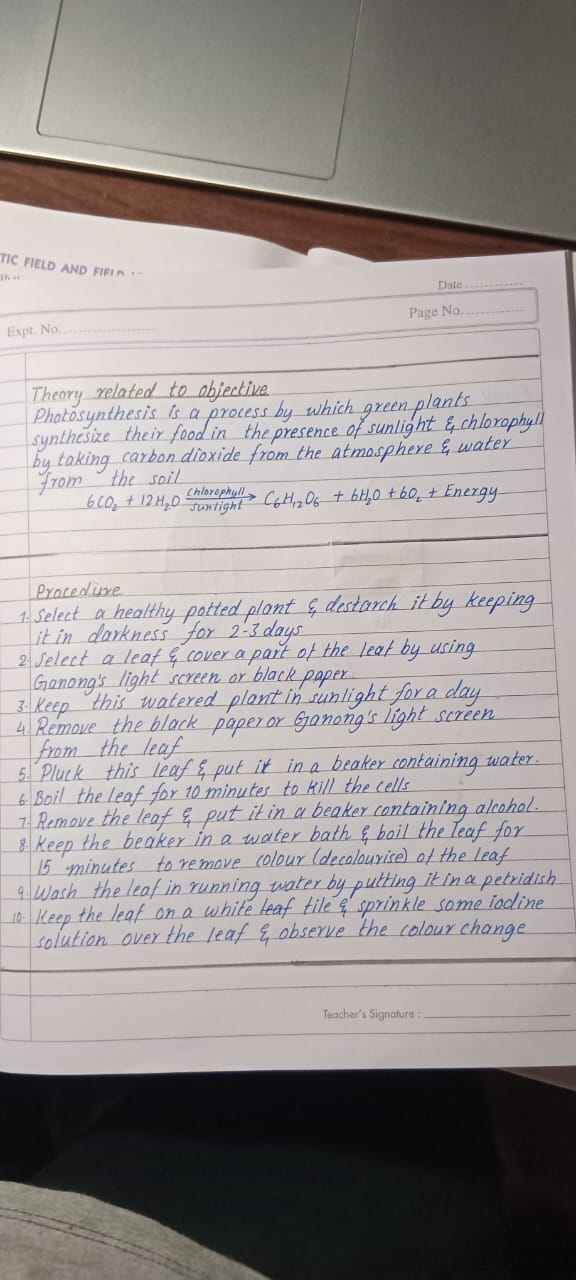 TIC FIELD AND FIELD
Date
Page No.
Expt. No.
Theory related to objective
Photosynthesis is a process by which green plants
synthesize their food in the presence of sunlight & chlorophyll
by taking carbon dioxide from the atmosphere & water
from the soil
6CO₂ + 12H₂O Chlorophyll/sunlight → C₆H₁₂O₆ + 6H₂O + 6O₂ + Energy
Procedure
1. Select a healthy potted plant & destarch it by keeping
it in darkness for 2-3 days
2. Select a leaf & cover a part of the leaf by using
Ganong's light screen or black paper
3. Keep this watered plant in sunlight for a day
4. Remove the black paper or Ganong's light screen
from the leaf
5. Pluck this leaf & put it in a beaker containing water.
6. Boil the leaf for 10 minutes to kill the cells
7. Remove the leaf & put it in a beaker containing alcohol.
8. Keep the beaker in a water bath & boil the leaf for
15 minutes to remove colour (decolourise) of the leaf
9. Wash the leaf in running water by putting it in a petridish
10. Keep the leaf on a white leaf tile & sprinkle some iodine
solution over the leaf & observe the colour change
Teacher's Signature :